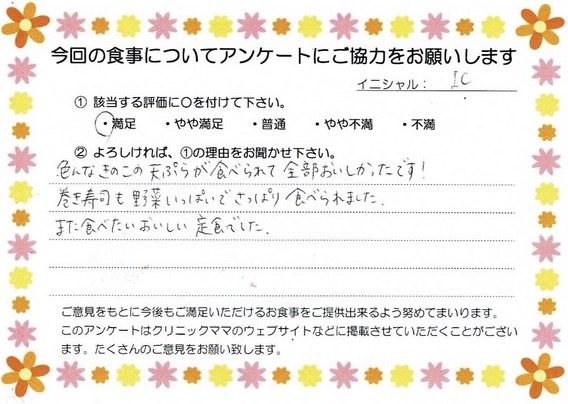 今回の食事についてアンケートにご協力をお願いします
イニシャル： I C
① 該当する評価に○を付けて下さい。
・満足 ・やや満足 ・普通 ・やや不満 ・不満
② よろしければ、①の理由をお聞かせ下さい。
色んなきのこの天ぷらが食べられて全部おいしかったです！
巻き寿司も野菜いっぱいでさっぱり食べられました。
また食べたいおいしい定食でした。
ご意見をもとに今後もご満足いただけるお食事をご提供出来るよう努めてまいります。
このアンケートはクリニックママのウェブサイトなどに掲載させていただくことがござい
ます。たくさんのご意見をお願い致します。